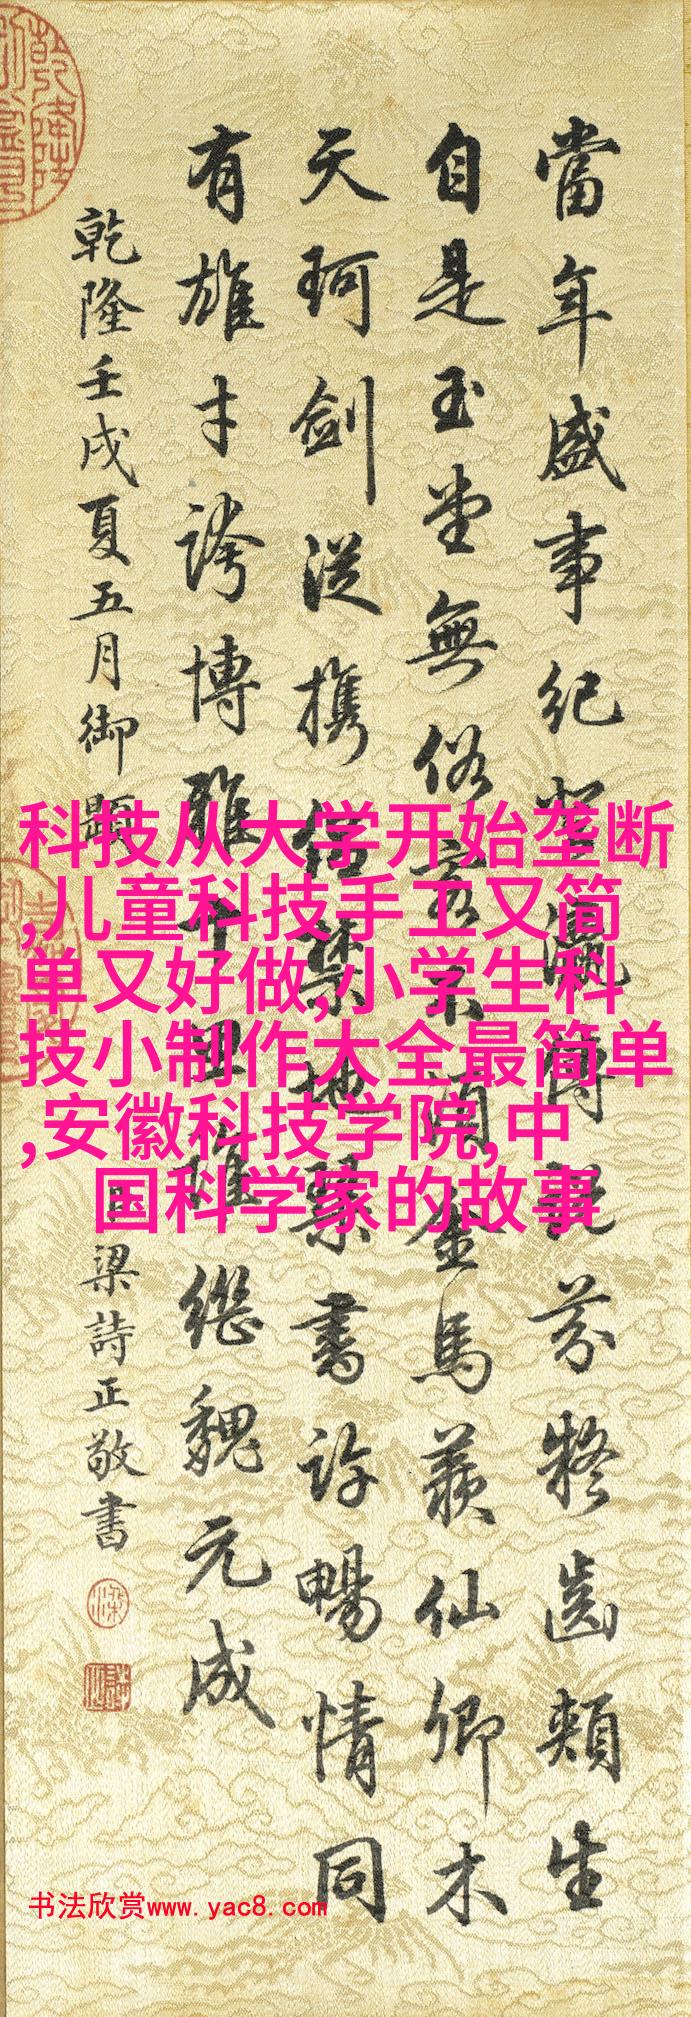 當年盛事紀登瀛說芬齒頰生
自是玉堂無俗客不須金馬羨仙卿木
天珂劍從攜侶禁地琴書許暢情同
有雄才誇博雅誰繼魏元成
乾隆壬戌夏五月御題
臣梁詩正敬書
乾隆
科技从大学开始垄断
,儿童科技手工又简
单又好做,小学生科
技小制作大全最简单
,安徽科技学院,中
国科学家的故事
书法欣赏www.yac8.com